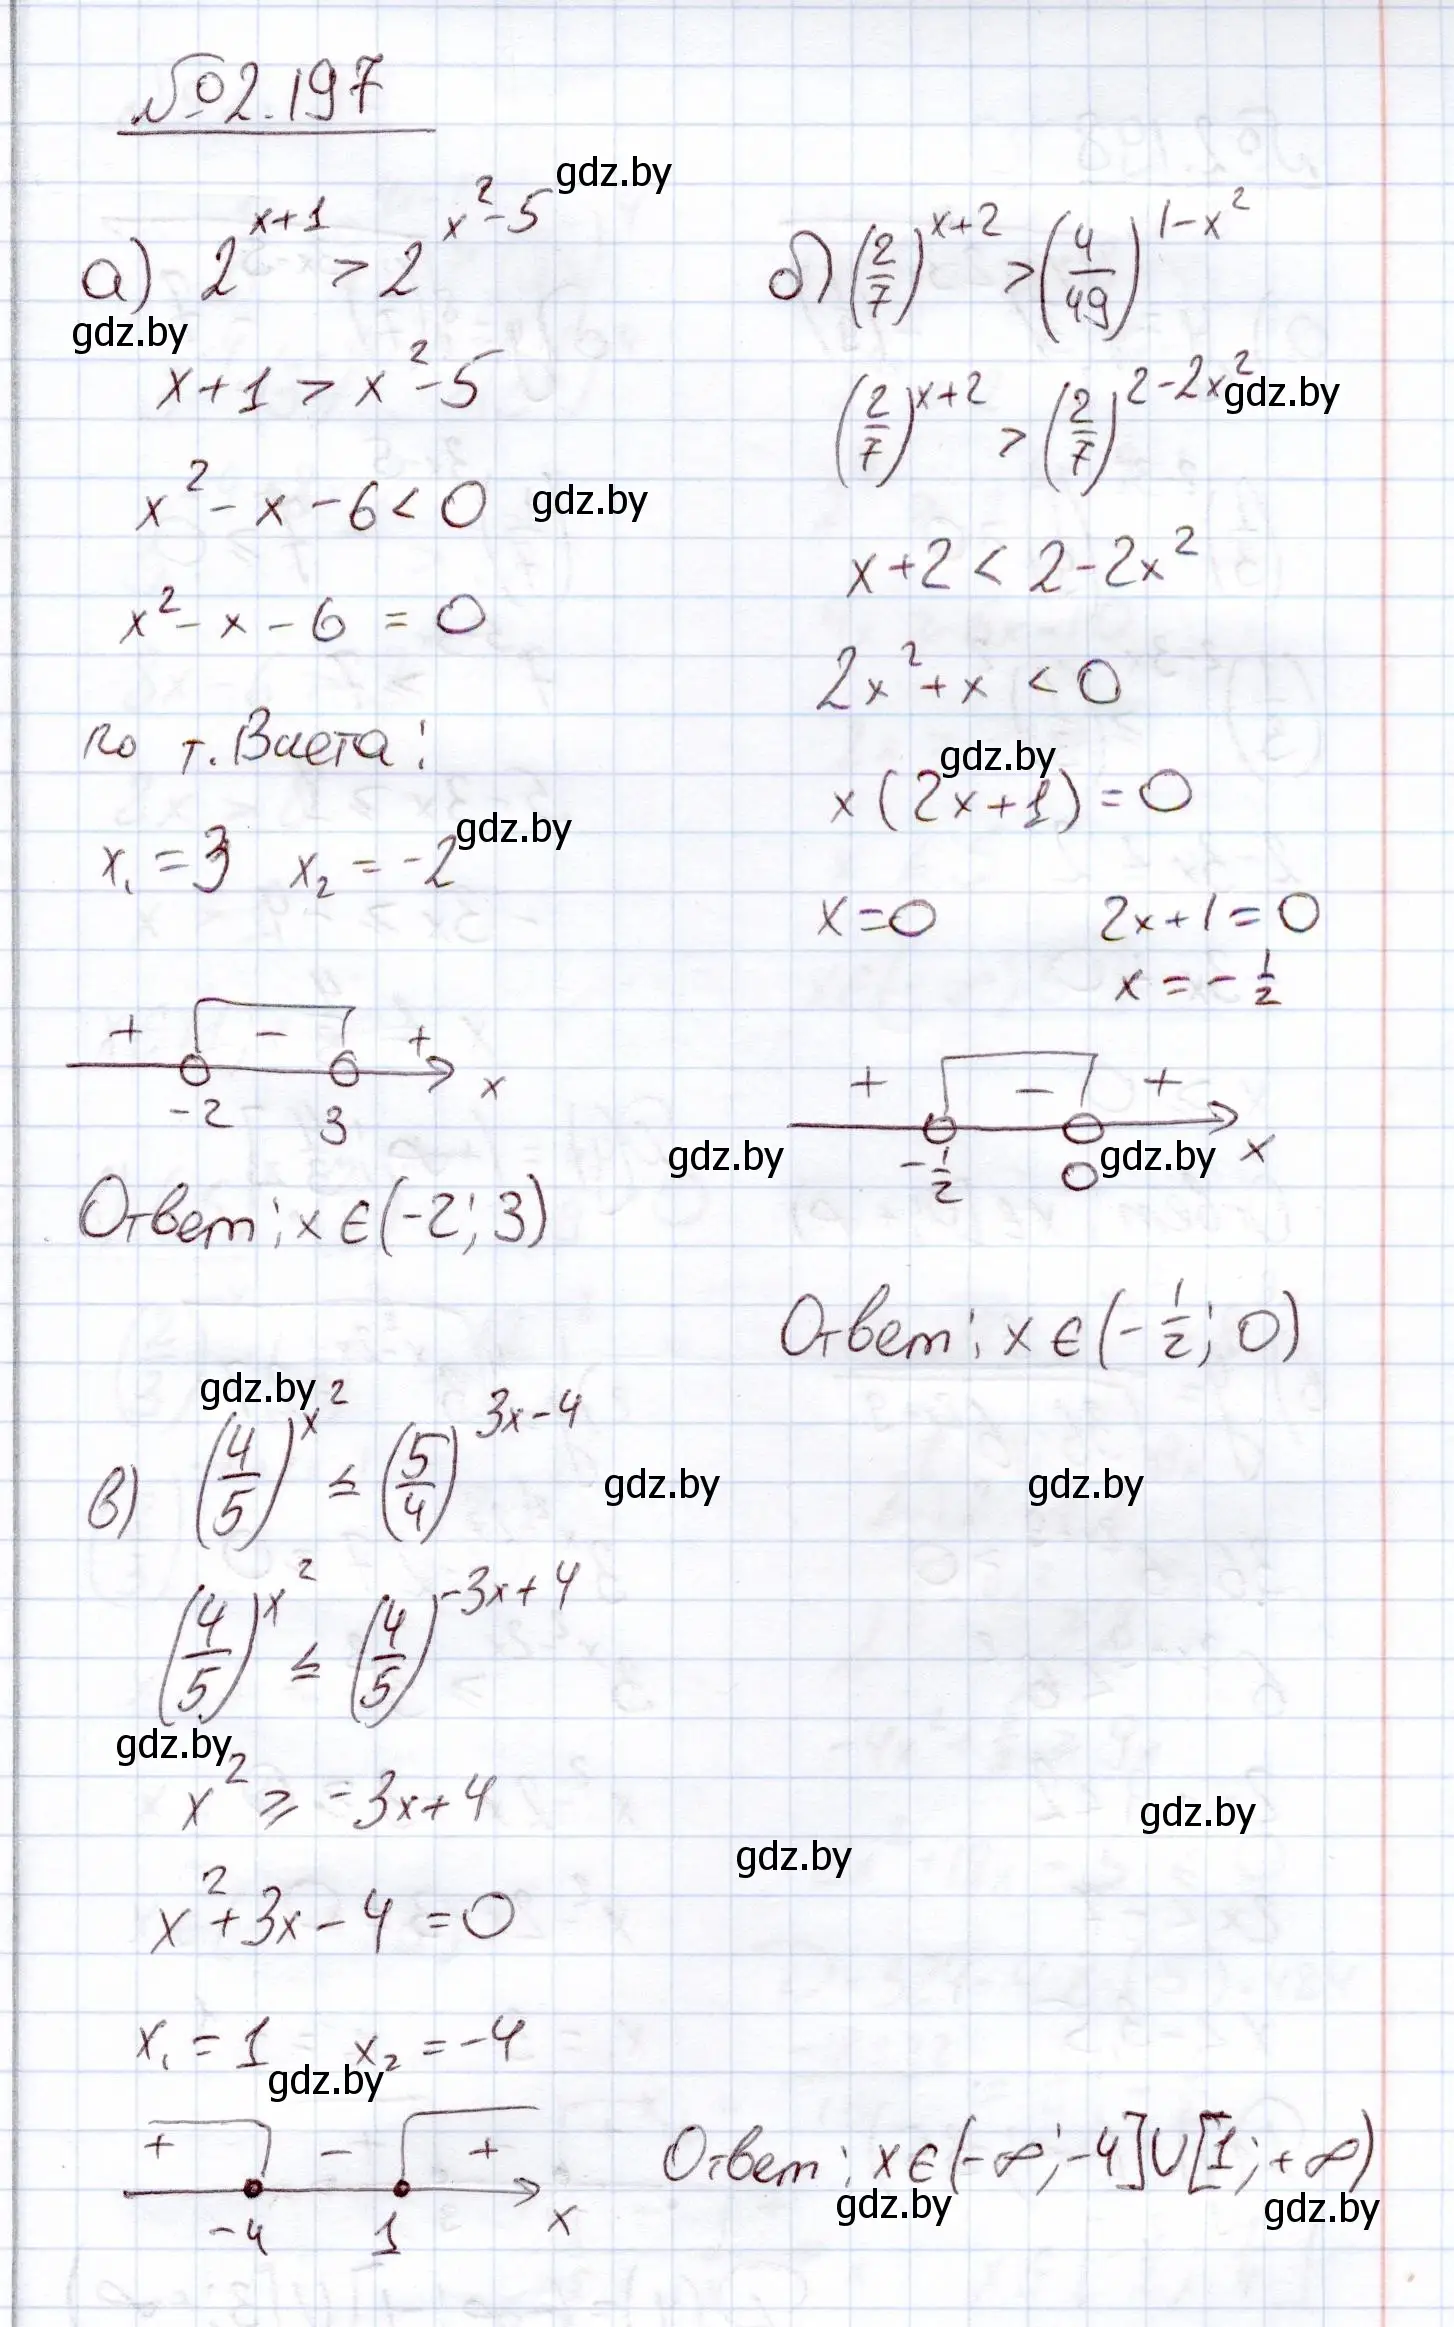 №2.197
gdz.by
а) 2^(x+1) > 2^(x²-5)
gdz.by
x+1 > x²-5
x² - x - 6 < 0 gdz.by
x² - x - 6 = 0
по т. Виета:
x₁ = 3 x₂ = -2 gdz.by
+ - + x
-2 3
Ответ: x ∈ (-2; 3)
б) (2/7)^(x+2) > (4/49)^(1-x²)
(2/7)^(x+2) > (2/7)^(2-2x²) gdz.by
x+2 < 2-2x²
2x²+x < 0
gdz.by
x(2x+1) = 0
x = 0 2x+1 = 0
x = -1/2
+ - +
gdz.by -1/2 0 gdz.by x
Ответ: x ∈ (-1/2; 0)
gdz.by
в) (4/5)^(x²) ≤ (5/4)^(3x-4)
gdz.by gdz.by
(4/5)^(x²) ≤ (4/5)^(-3x+4)
gdz.by
x² ≥ -3x+4
gdz.by
gdz.by
x²+3x-4 = 0
x₁ = 1 x₂ = -4
gdz.by
+ - +
-4 1 x
Ответ: x ∈ (-∞; -4] ∪ [1; +∞)
gdz.by gdz.by